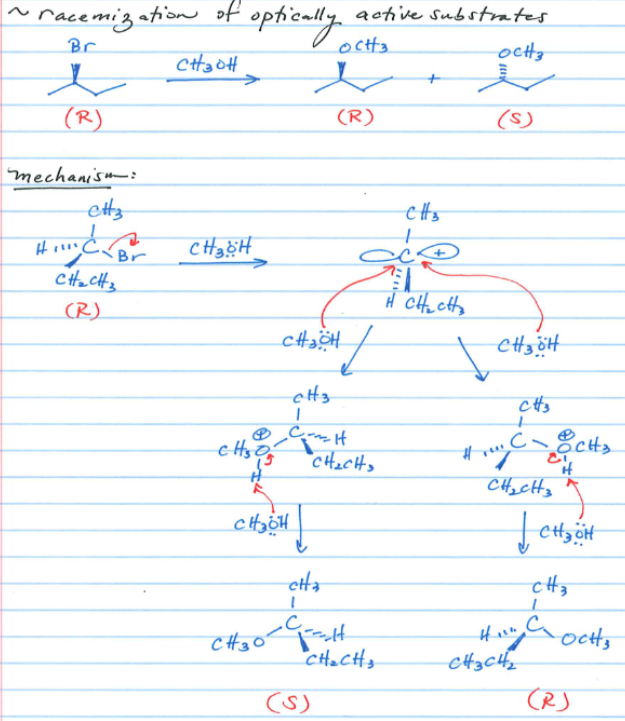 ~ racemization of optically active substrates
Br CH3OH OCH3 + OCH3
(R) (R) (S)
mechanism:
CH3 CH3
H C Br CH3ÖH C +
CH2CH3 H CH2CH3
(R)
CH3ÖH CH3ÖH
CH3 CH3
CH3O ⊕ C H H C ⊕ OCH3
H CH2CH3 CH2CH3 H
CH3ÖH CH3ÖH
CH3 CH3
CH3O C H H C OCH3
CH2CH3 CH3CH2
(S) (R)